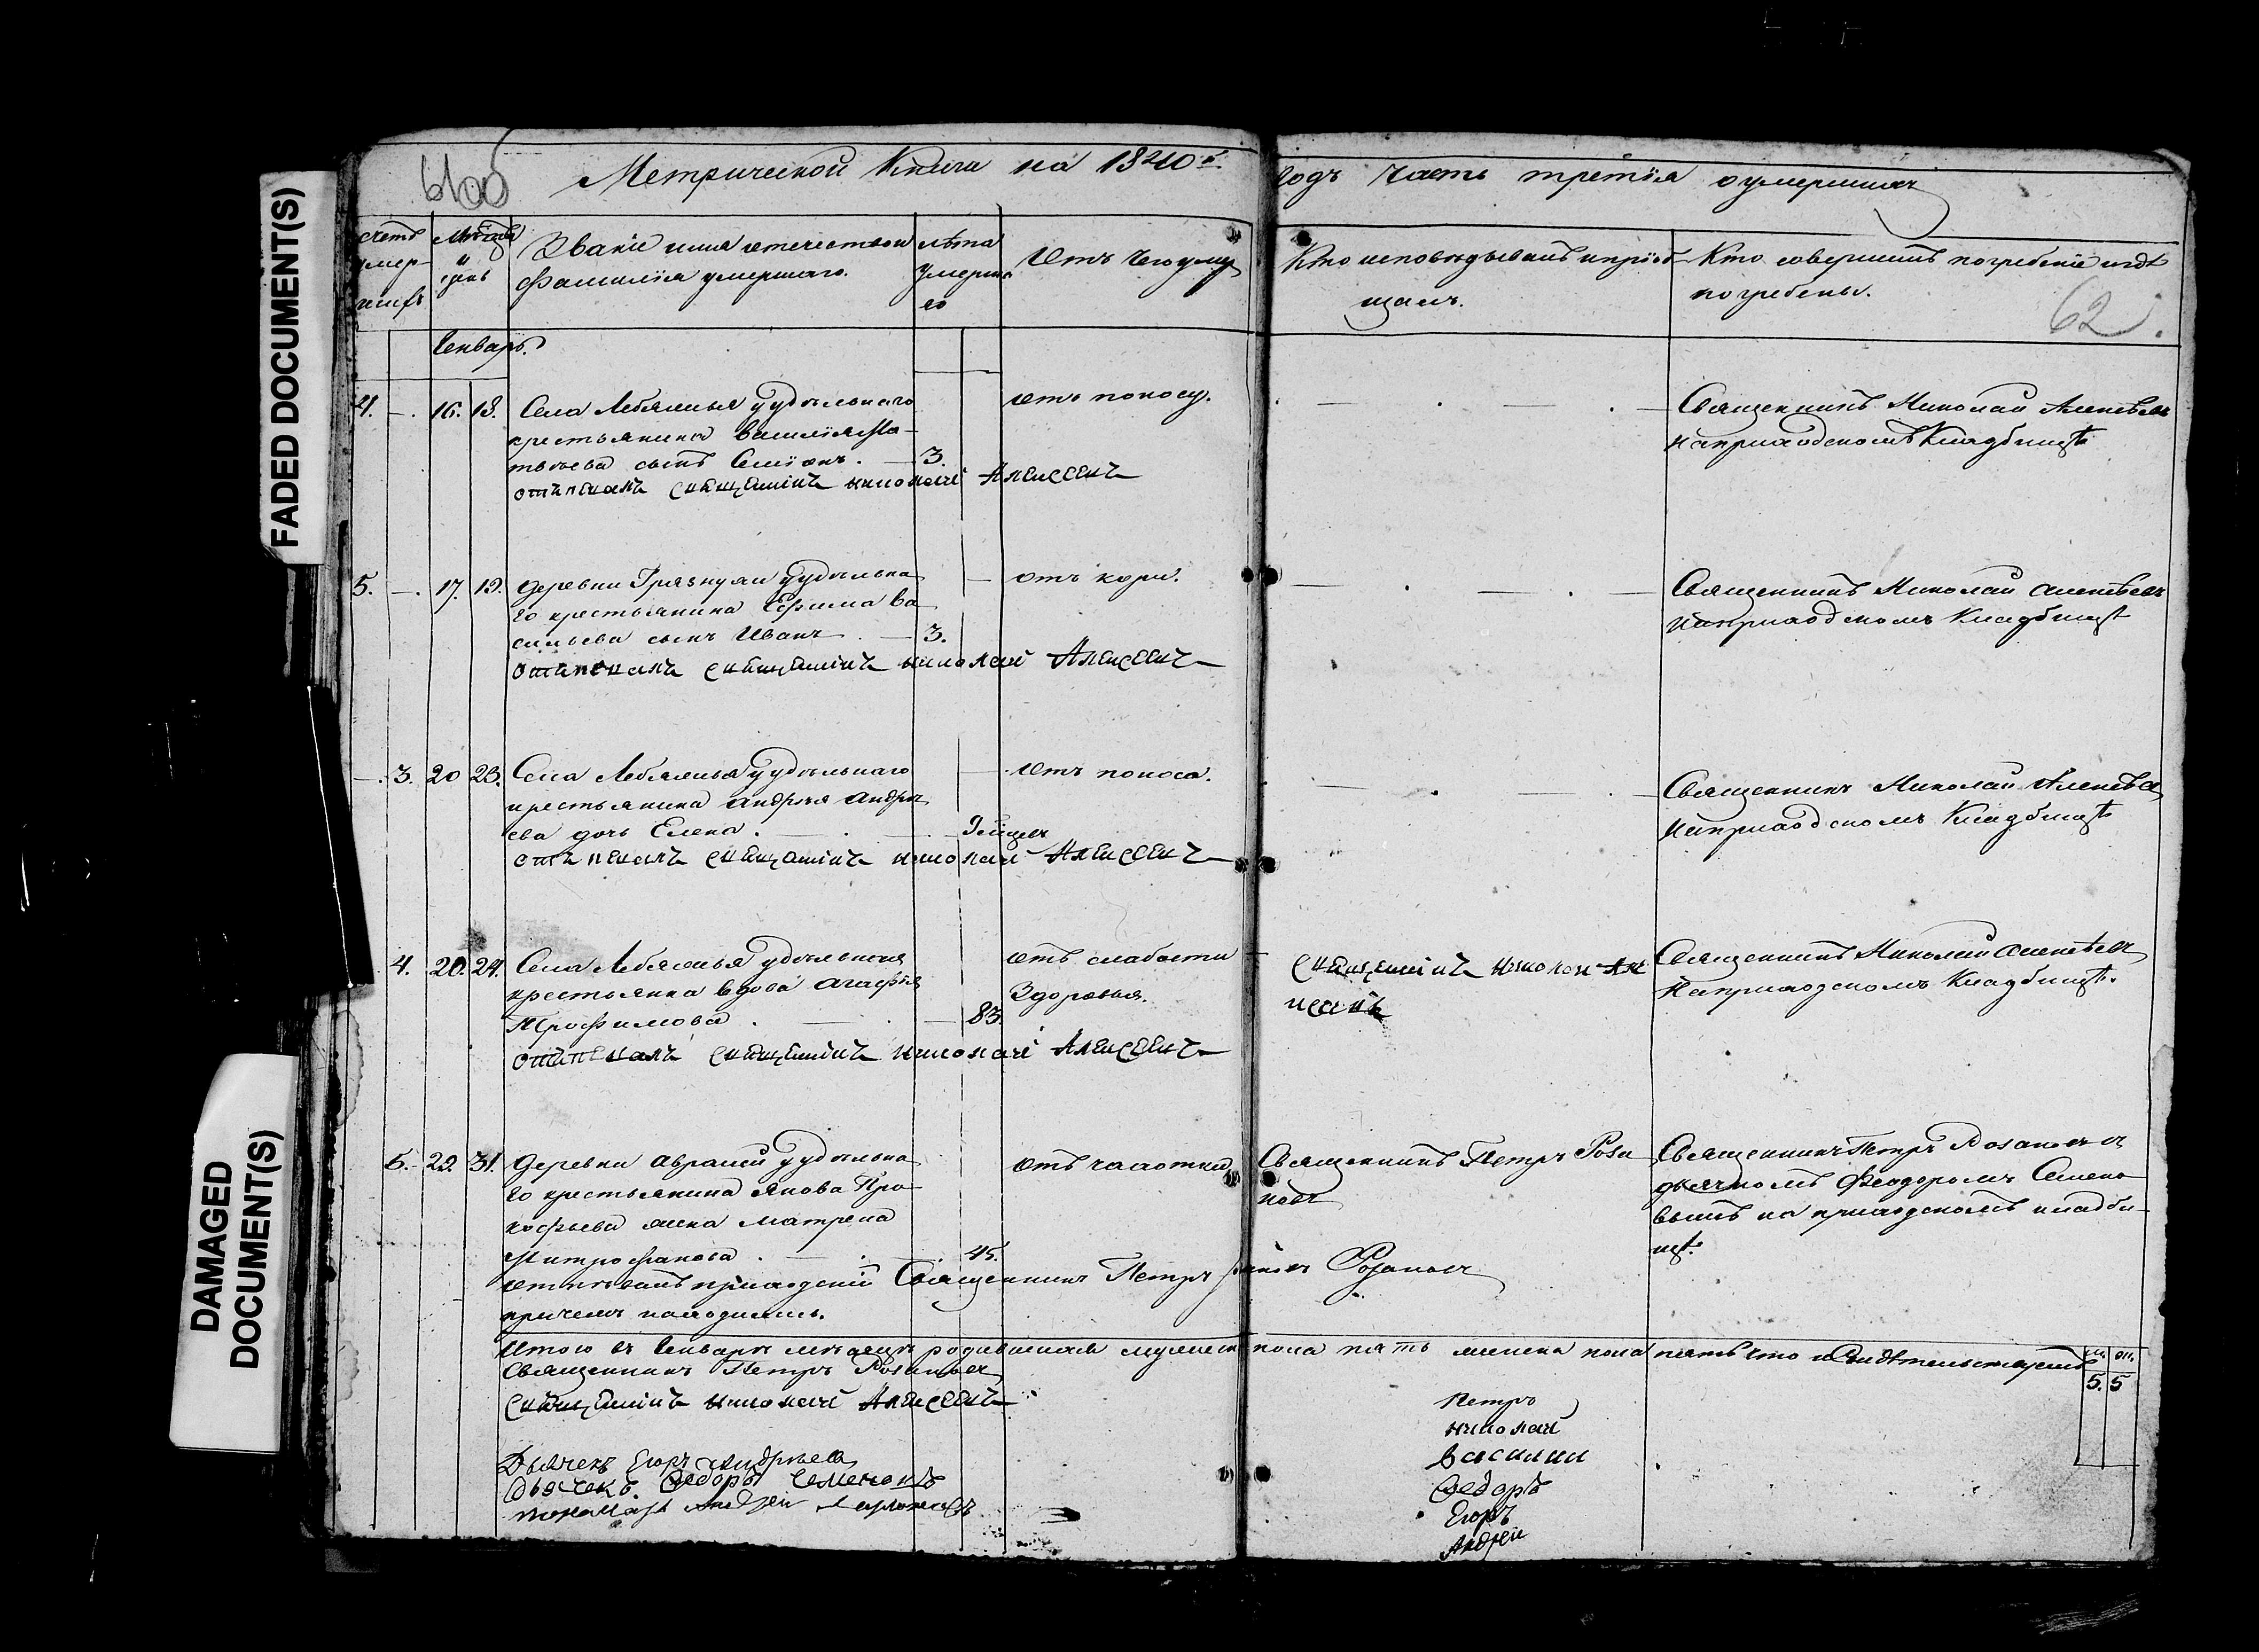 FADED DOCUMENT(S)
DAMAGED
DOCUMENT(S)
61об
Метрической Книги на 1840й
годъ часть третїя о умершихъ
62.
счетъ
умер-
шихъ
Мѣсяцъ
и
день
Званїе имя отечество и
фамилїя умершаго.
лѣта
умерша
го
Отъ чего умр
Кто исповѣдывалъ и прїоб-
щалъ.
Кто совершилъ погребенїе и гдѣ
погребены.
Генварь.
4. —. 16. 18.
Села Лебяжья удѣльнаго
крестьянина Василїя Ма-
твѣева сынъ Симїонъ. — 3.
отъ поносу.
отпѣвалъ священникъ николай Алексеевъ
Священникъ Николай Алексѣевъ
на приходскомъ Кладбищѣ
5. —. 17. 19.
деревни Грязнухи удѣльна
го крестьянина Ефима Ва
сильева сынъ Иванъ . — 3.
отъ кори.
отпѣвалъ священникъ николай Алексеевъ
Священникъ Николай Алексѣевъ
на приходскомъ Кладбищѣ
—. 3. 20 23.
Села Лебяжья удѣльнаго
крестьянина Андрѣя Андрѣ
ева дочь Елена.
отъ поноса.
отпѣвалъ священникъ николай Алексеевъ
Священникъ Николай Алексѣевъ
на приходскомъ Кладбищѣ
4. 20. 24.
Села Лебяжья удѣльная
крестьянка вдова Агафья
Трофимова . — 83.
отъ слабости
здоровья.
священникъ николай Ал
отпѣвалъ священникъ николай Алексеевъ
Священникъ Николай Алексѣевъ
на приходскомъ Кладбищѣ.
5. 29. 31.
деревни Авралей удѣльна
го крестьянина Якова Про
кофьева жена Матрена
Митрофанова . — 45.
отъ чахотки
Священникъ Петръ Роза
новъ
Священникъ Петръ Розановъ съ
дьячкомъ Феодоромъ Семено
вымъ на приходскомъ кладби-
щѣ.
отпѣвалъ приходскїй Священникъ Петръ Розановъ
причемъ находились.
Итого въ Генварѣ мѣсяцѣ родившихся мужеска пола пять женска пола пять что и свидѣтельствуемъ
м. ж.
5. 5
Священникъ Петръ Розановъ
священникъ николай Алексеевъ
Дьячекъ Егоръ Андрѣевъ
Дьячекъ Федоръ Семеновъ
пономарь Андрей
Петръ
николай
Василий
Федоръ
Егоръ
Андрей